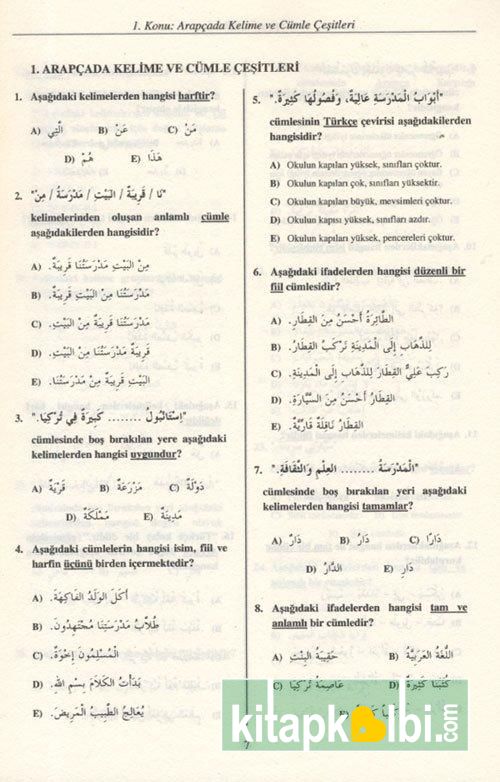 1. Konu: Arapçada Kelime ve Cümle Çeşitleri
1. ARAPÇADA KELİME VE CÜMLE ÇEŞİTLERİ
1. Aşağıdaki kelimelerden hangisi harftir?
A) الَّتِي B) عَنْ C) مَنْ
D) هُمْ E) هَذَا
2. "نَا / قَرِيبَةٌ / الْبَيْتِ / مَدْرَسَةُ / مِنْ"
kelimelerinden oluşan anlamlı cümle
aşağıdakilerden hangisidir?
A) مِنَ الْبَيْتِ مَدْرَسَتُنَا قَرِيبَةٌ.
B) مَدْرَسَتُنَا مِنَ الْبَيْتِ قَرِيبَةٌ.
C) مَدْرَسَتُنَا قَرِيبَةٌ مِنَ الْبَيْتِ.
D) قَرِيبَةٌ مَدْرَسَتُنَا مِنَ الْبَيْتِ.
E) الْبَيْتِ قَرِيبَةٌ مِنْ مَدْرَسَتُنَا.
3. "إِسْتَانْبُولُ ........ كَبِيرَةٌ فِي تُرْكِيَا."
cümlesinde boş bırakılan yere aşağıdaki
kelimelerden hangisi uygundur?
A) قَرْيَةٌ B) مَزْرَعَةٌ C) دَوْلَةٌ
D) مَمْلَكَةٌ E) مَدِينَةٌ
4. Aşağıdaki cümlelerin hangisin isim, fiil ve
harfin üçünü birden içermektedir?
A) أَكَلَ الْوَلَدُ الْفَاكِهَةَ.
B) طُلَّابُ مَدْرَسَتِنَا مُجْتَهِدُونَ.
C) الْمُسْلِمُونَ إِخْوَةٌ.
D) بَدَأْتُ الْكَلَامَ بِسْمِ اللهِ.
E) يُعَالِجُ الطَّبِيبُ الْمَرِيضَ.
5. "أَبْوَابُ الْمَدْرَسَةِ عَالِيَةٌ، وَفُصُولُهَا كَثِيرَةٌ."
cümlesinin Türkçe çevirisi aşağıdakilerden
hangisidir?
A) Okulun kapıları yüksek, sınıfları çoktur.
B) Okulun kapıları çok, sınıfları yüksektir.
C) Okulun kapıları büyük, mevsimleri çoktur.
D) Okulun kapısı yüksek, sınıfları azdır.
E) Okulun kapıları yüksek, pencereleri çoktur.
6. Aşağıdaki ifadelerden hangisi düzenli bir
fiil cümlesidir?
A) الطَّائِرَةُ أَحْسَنُ مِنَ الْقِطَارِ.
B) لِلذَّهَابِ إِلَى الْمَدِينَةِ تَرْكَبُ الْقِطَارُ.
C) رَكِبَ عَلِيٌّ الْقِطَارَ لِلذَّهَابِ إِلَى الْمَدِينَةِ.
D) الْقِطَارُ أَحْسَنُ مِنَ السَّيَّارَةِ.
E) الْقِطَارُ نَاقِلَةٌ قَارِّيَّةٌ.
7. "الْمَدْرَسَةُ ........ الْعِلْمِ وَالثَّقَافَةِ."
cümlesinde boş bırakılan yeri aşağıdaki
kelimelerden hangisi tamamlar?
A) دَارٌ B) دَارُ C) دَارًا
D) الدَّارُ E) دَارِ
8. Aşağıdaki ifadelerden hangisi tam ve
anlamlı bir cümledir?
A) حَقِيبَةُ الْبِنْتِ B) اللُّغَةُ الْعَرَبِيَّةُ
C) كُتُبُنَا كَثِيرَةٌ D) عَاصِمَةُ تُرْكِيَا
kitapkalbi.com
7